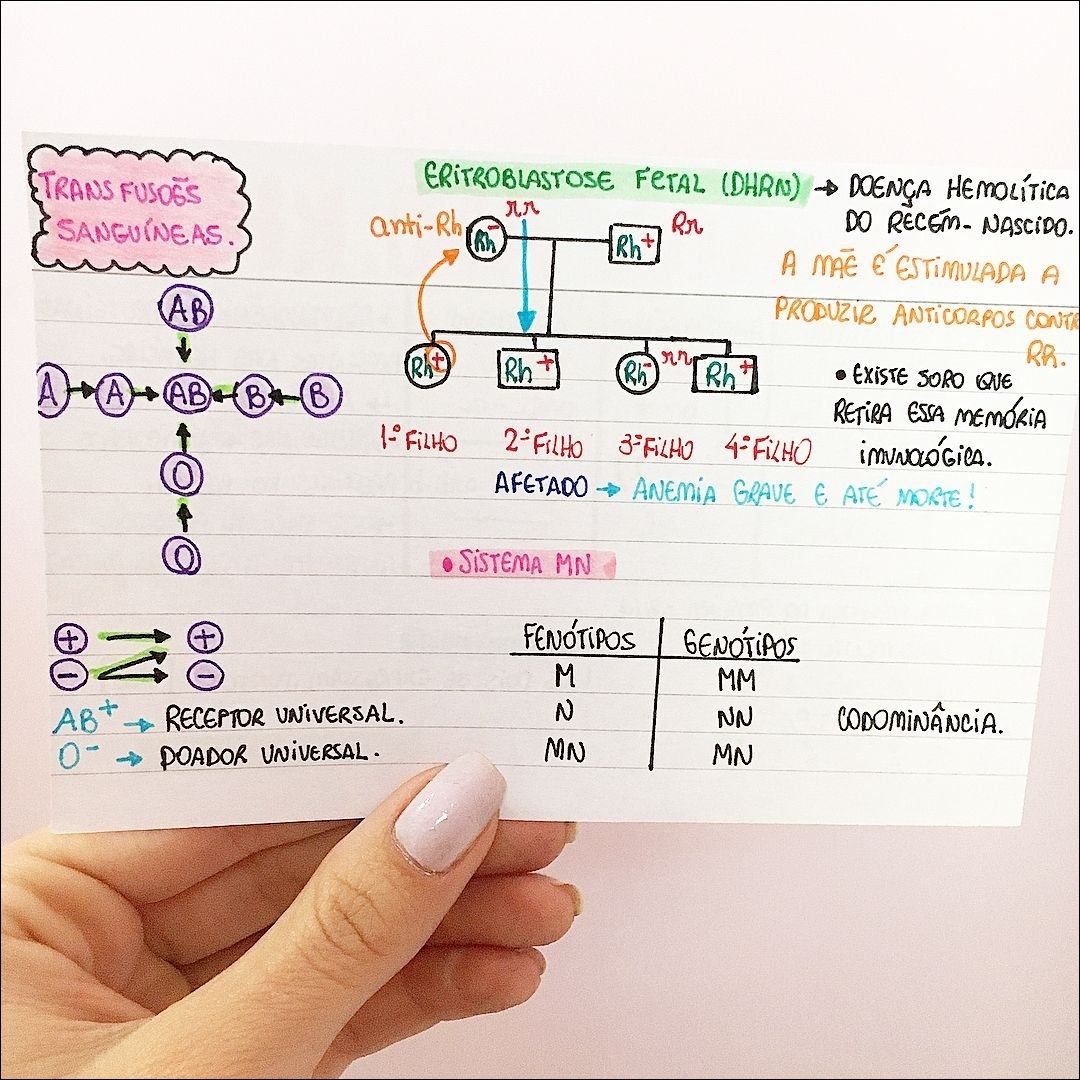 TRANSFUSOẼS
SANGUÍNEAS.
AB
A A AB B B
O
O
+ +
- -
AB+ → RECEPTOR UNIVERSAL.
O- → DOADOR UNIVERSAL.
ERITROBLASTOSE FETAL (DHRN) → DOENÇA HEMOLÍTICA
DO RECÉM-NASCIDO.
anti-Rh Rh- rr Rh+ Rr
A MÃE É ESTIMULADA A
PRODUZIR ANTICORPOS CONT
RR.
Rh+ Rh+ Rh- rr Rh+
1º FILHO 2º FILHO 3º FILHO 4º FILHO
AFETADO → ANEMIA GRAVE E ATÉ MORTE!
• EXISTE SORO QUE
RETIRA ESSA MEMÓRIA
IMUNOLÓGICA.
• SISTEMA MN
FENÓTIPOS GENÓTIPOS
M MM
N NN CODOMINÂNCIA.
MN MN